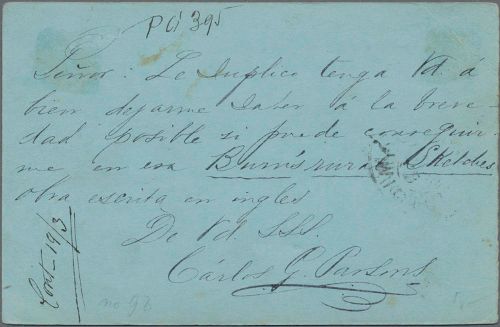 PCi 395
Señor: Le suplico tenga Vd. á
bien dejarme saber á la breve-
dad posible si puede conseguir
me en esa Burn's rural Sketches
obra escrita en ingles
De Vd. SSS.
Cárlos G. Parsons.
Cont- 19/3
no 96